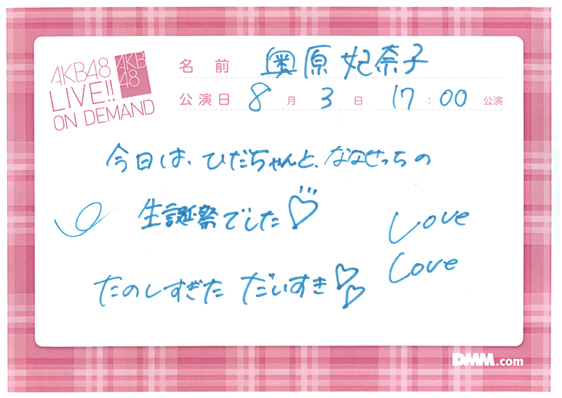 AKB48
LIVE!!
ON DEMAND
AKB
48
名前 奥原 妃奈子
公演日 8月3日 17:00 公演
今日は、ひだちゃんと、ななせっちの
生誕祭でした♡
Love
Love
たのしすぎた だいすき♡♡
DMM.com